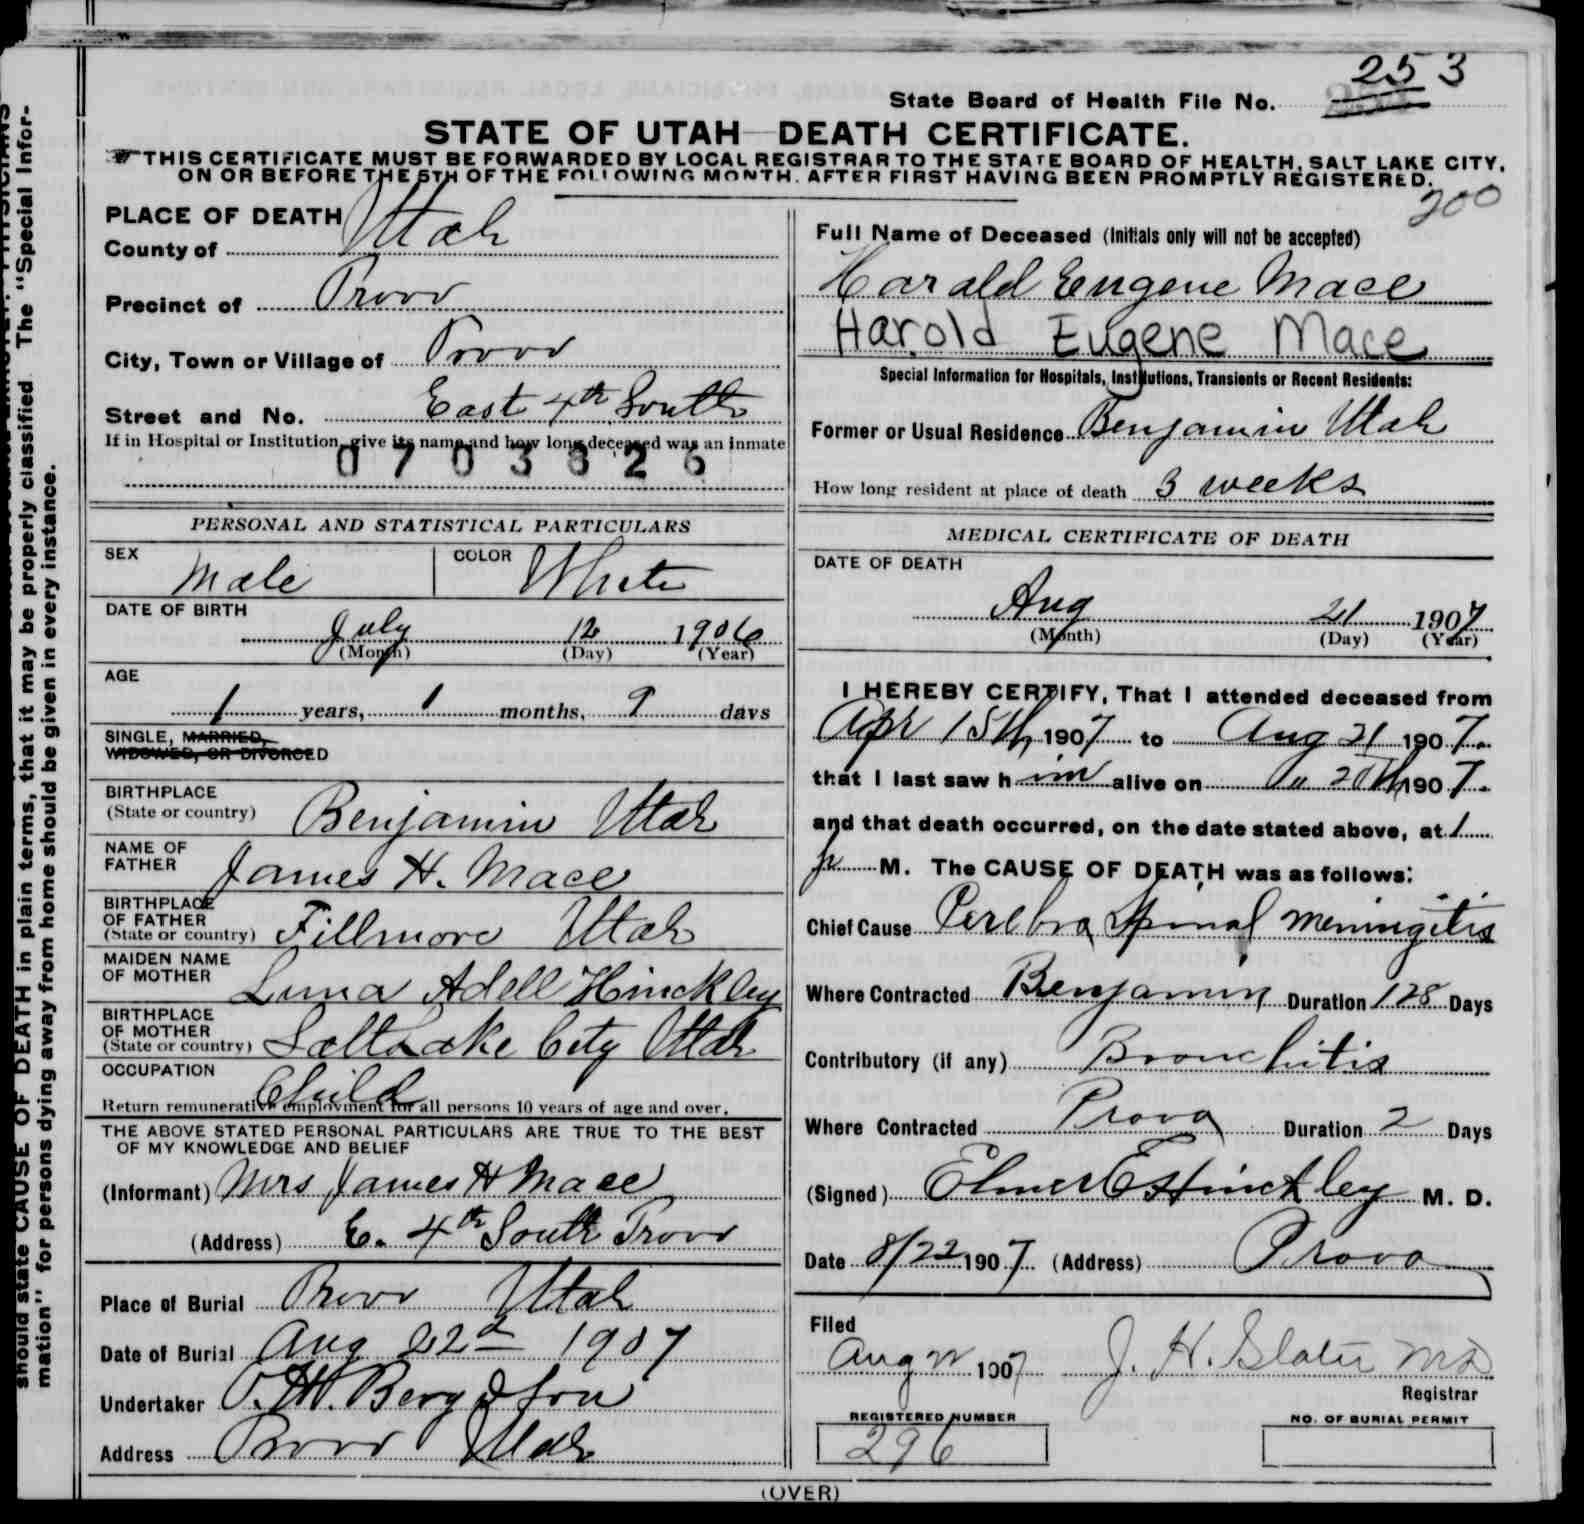 253
State Board of Health File No.
STATE OF UTAH—DEATH CERTIFICATE.
THIS CERTIFICATE MUST BE FORWARDED BY LOCAL REGISTRAR TO THE STATE BOARD OF HEALTH, SALT LAKE CITY,
ON OR BEFORE THE 5TH OF THE FOLLOWING MONTH, AFTER FIRST HAVING BEEN PROMPTLY REGISTERED.
200
should state CAUSE OF DEATH in plain terms, that it may be properly classified. The "Special Infor-
mation" for persons dying away from home should be given in every instance.
PLACE OF DEATH
County of Utah
Precinct of Provo
City, Town or Village of Provo
Street and No. East 4th South
If in Hospital or Institution, give its name and how long deceased was an inmate
0703826
PERSONAL AND STATISTICAL PARTICULARS
SEX Male COLOR White
DATE OF BIRTH
July 12 1906
(Month) (Day) (Year)
AGE
1 years, 1 months, 9 days
SINGLE, MARRIED,
WIDOWED, OR DIVORCED
BIRTHPLACE
(State or country) Benjamin Utah
NAME OF
FATHER James H. Mace
BIRTHPLACE
OF FATHER
(State or country) Fillmore Utah
MAIDEN NAME
OF MOTHER Luna Adell Hinckley
BIRTHPLACE
OF MOTHER
(State or country) Salt Lake City Utah
OCCUPATION Child
Return remunerative employment for all persons 10 years of age and over.
THE ABOVE STATED PERSONAL PARTICULARS ARE TRUE TO THE BEST
OF MY KNOWLEDGE AND BELIEF
(Informant) Mrs James H Mace
(Address) E. 4th South Provo
Place of Burial Provo Utah
Date of Burial Aug 22d 1907
Undertaker O. H. Berg & Son
Address Provo Utah
Full Name of Deceased (Initials only will not be accepted)
Harald Eugene Mace
Harold Eugene Mace
Special Information for Hospitals, Institutions, Transients or Recent Residents:
Former or Usual Residence Benjamin Utah
How long resident at place of death 3 weeks
MEDICAL CERTIFICATE OF DEATH
DATE OF DEATH
Aug 21 1907
(Month) (Day) (Year)
I HEREBY CERTIFY, That I attended deceased from
Apr 15th 1907 to Aug 21 1907.
that I last saw him alive on " 20th 1907.
and that death occurred, on the date stated above, at 1
p M. The CAUSE OF DEATH was as follows:
Chief Cause Cerebra Spinal Meningitis
Where Contracted Benjamin Duration 128 Days
Contributory (if any) Bronchitis
Where Contracted Provo Duration 2 Days
(Signed) Elmer E Hinckley M. D.
Date 8/22 1907 (Address) Provo
Filed
Aug 22 1907 J. H. Slater MD
Registrar
REGISTERED NUMBER NO. OF BURIAL PERMIT
296
(OVER)